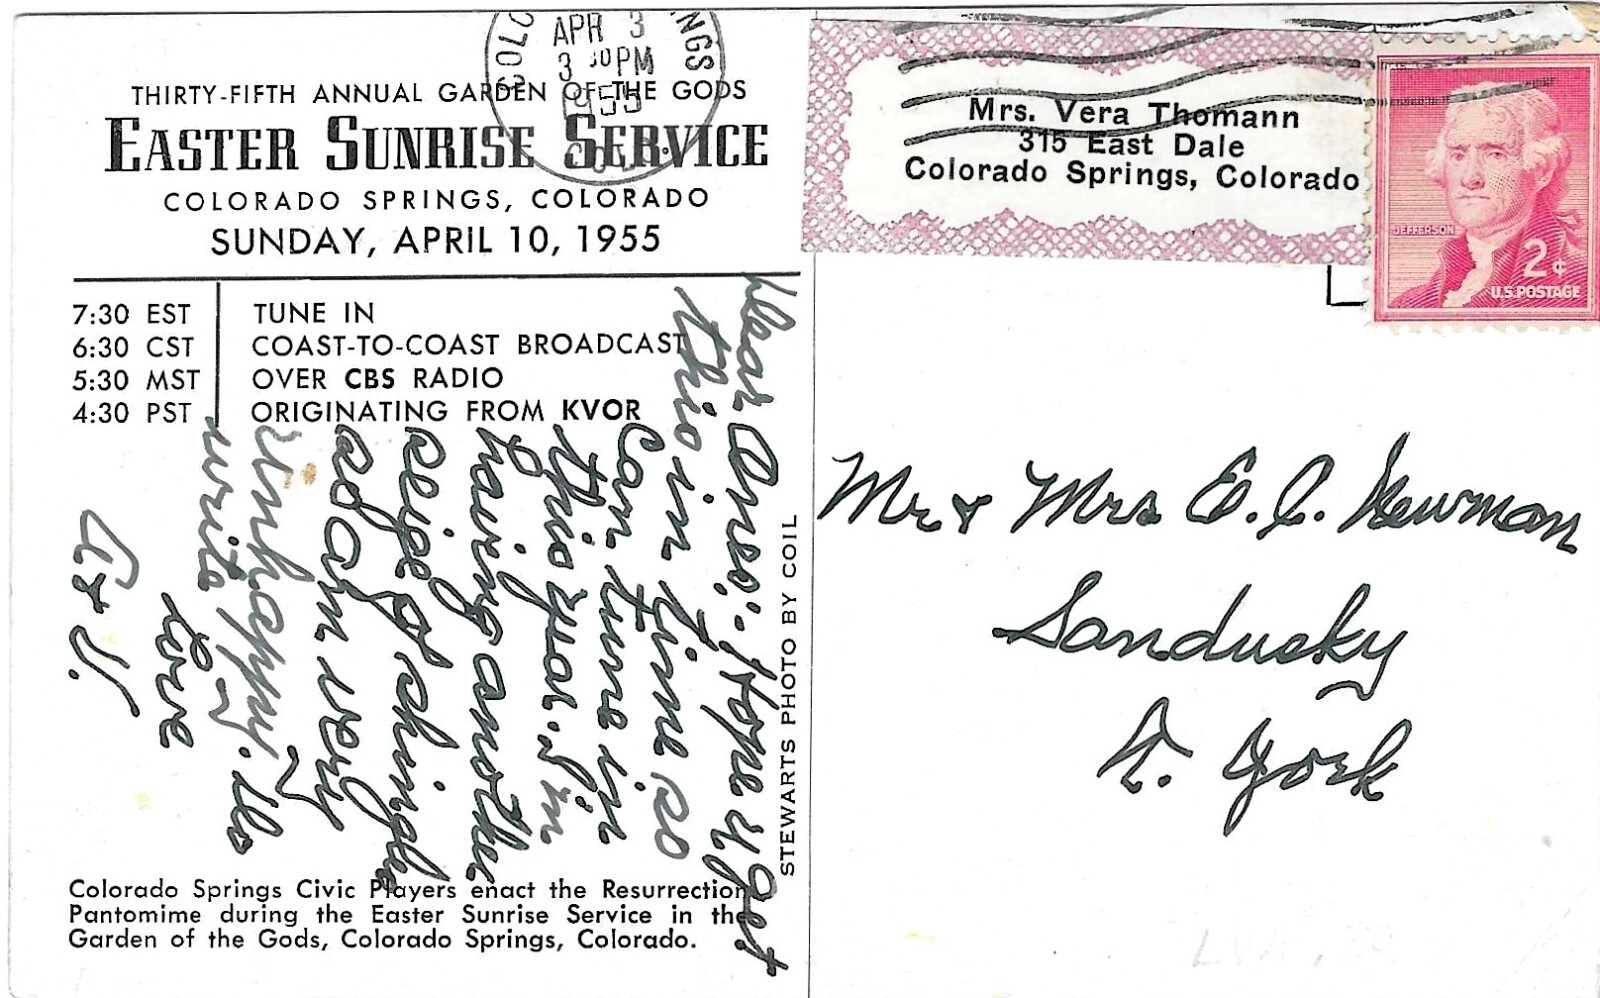 THIRTY-FIFTH ANNUAL GARDEN OF THE GODS
EASTER SUNRISE SERVICE
COLORADO SPRINGS, COLORADO
SUNDAY, APRIL 10, 1955
7:30 EST
6:30 CST
5:30 MST
4:30 PST
TUNE IN
COAST-TO-COAST BROADCAST
OVER CBS RADIO
ORIGINATING FROM KVOR
Dear Ones:- Hope u get
this in time so
can tune in
this year. I'm
having another
seige of shingles
so am very
unhappy. Do
write
love
V.
Colorado Springs Civic Players enact the Resurrection
Pantomime during the Easter Sunrise Service in the
Garden of the Gods, Colorado Springs, Colorado.
STEWARTS PHOTO BY COIL
APR 3
3 30 PM
1955
COLO.
NGS
Mrs. Vera Thomann
315 East Dale
Colorado Springs, Colorado
JEFFERSON
2¢
U.S. POSTAGE
Mr & Mrs E. C. Newman
Sandusky
N. York